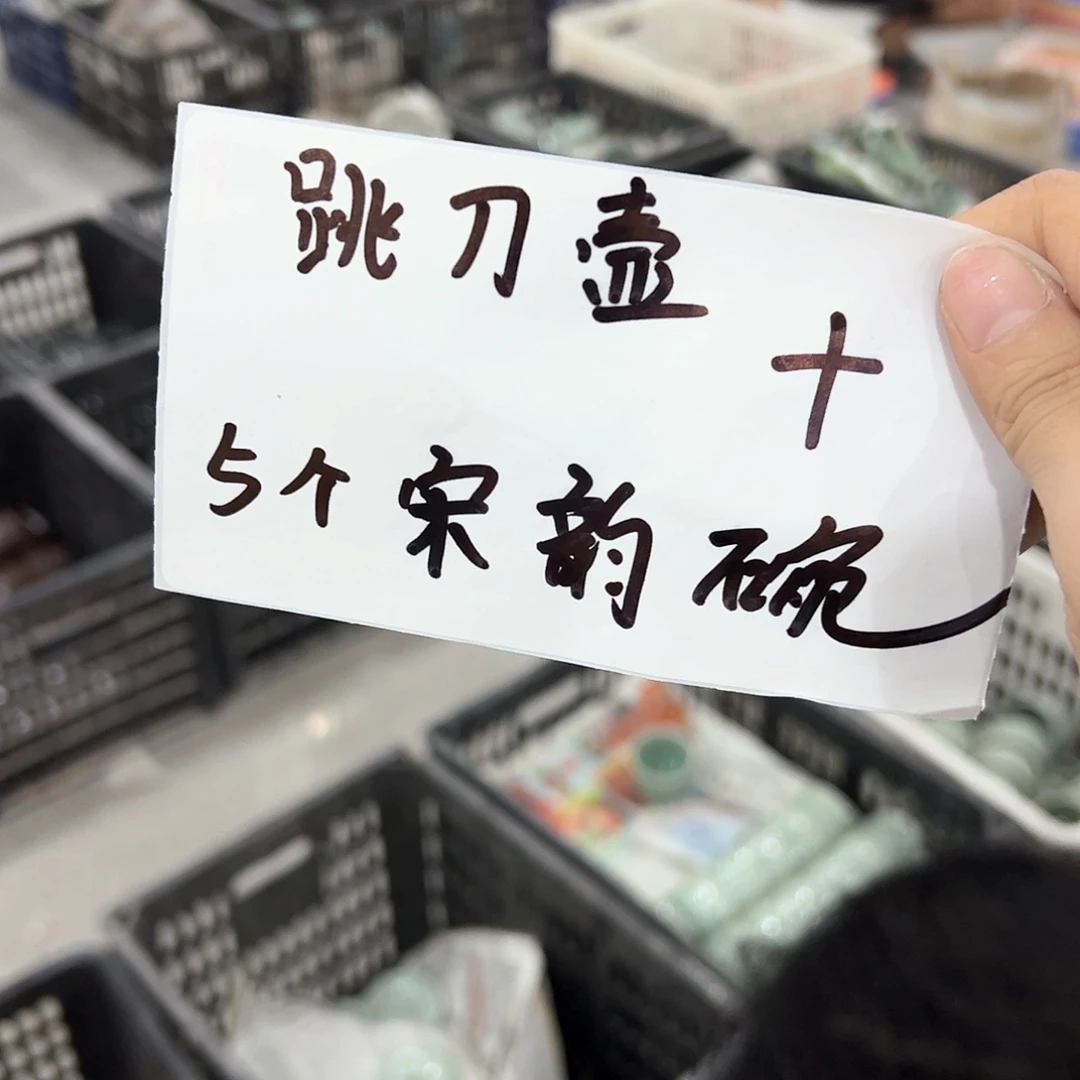 跳刀壶
+
5个宋韵碗